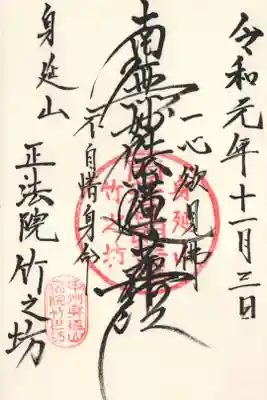 令和元年十一月三日
一心欲見佛
南無妙法蓮華経
不自惜身命
身延山
正法院 竹之坊
身延山
竹之坊